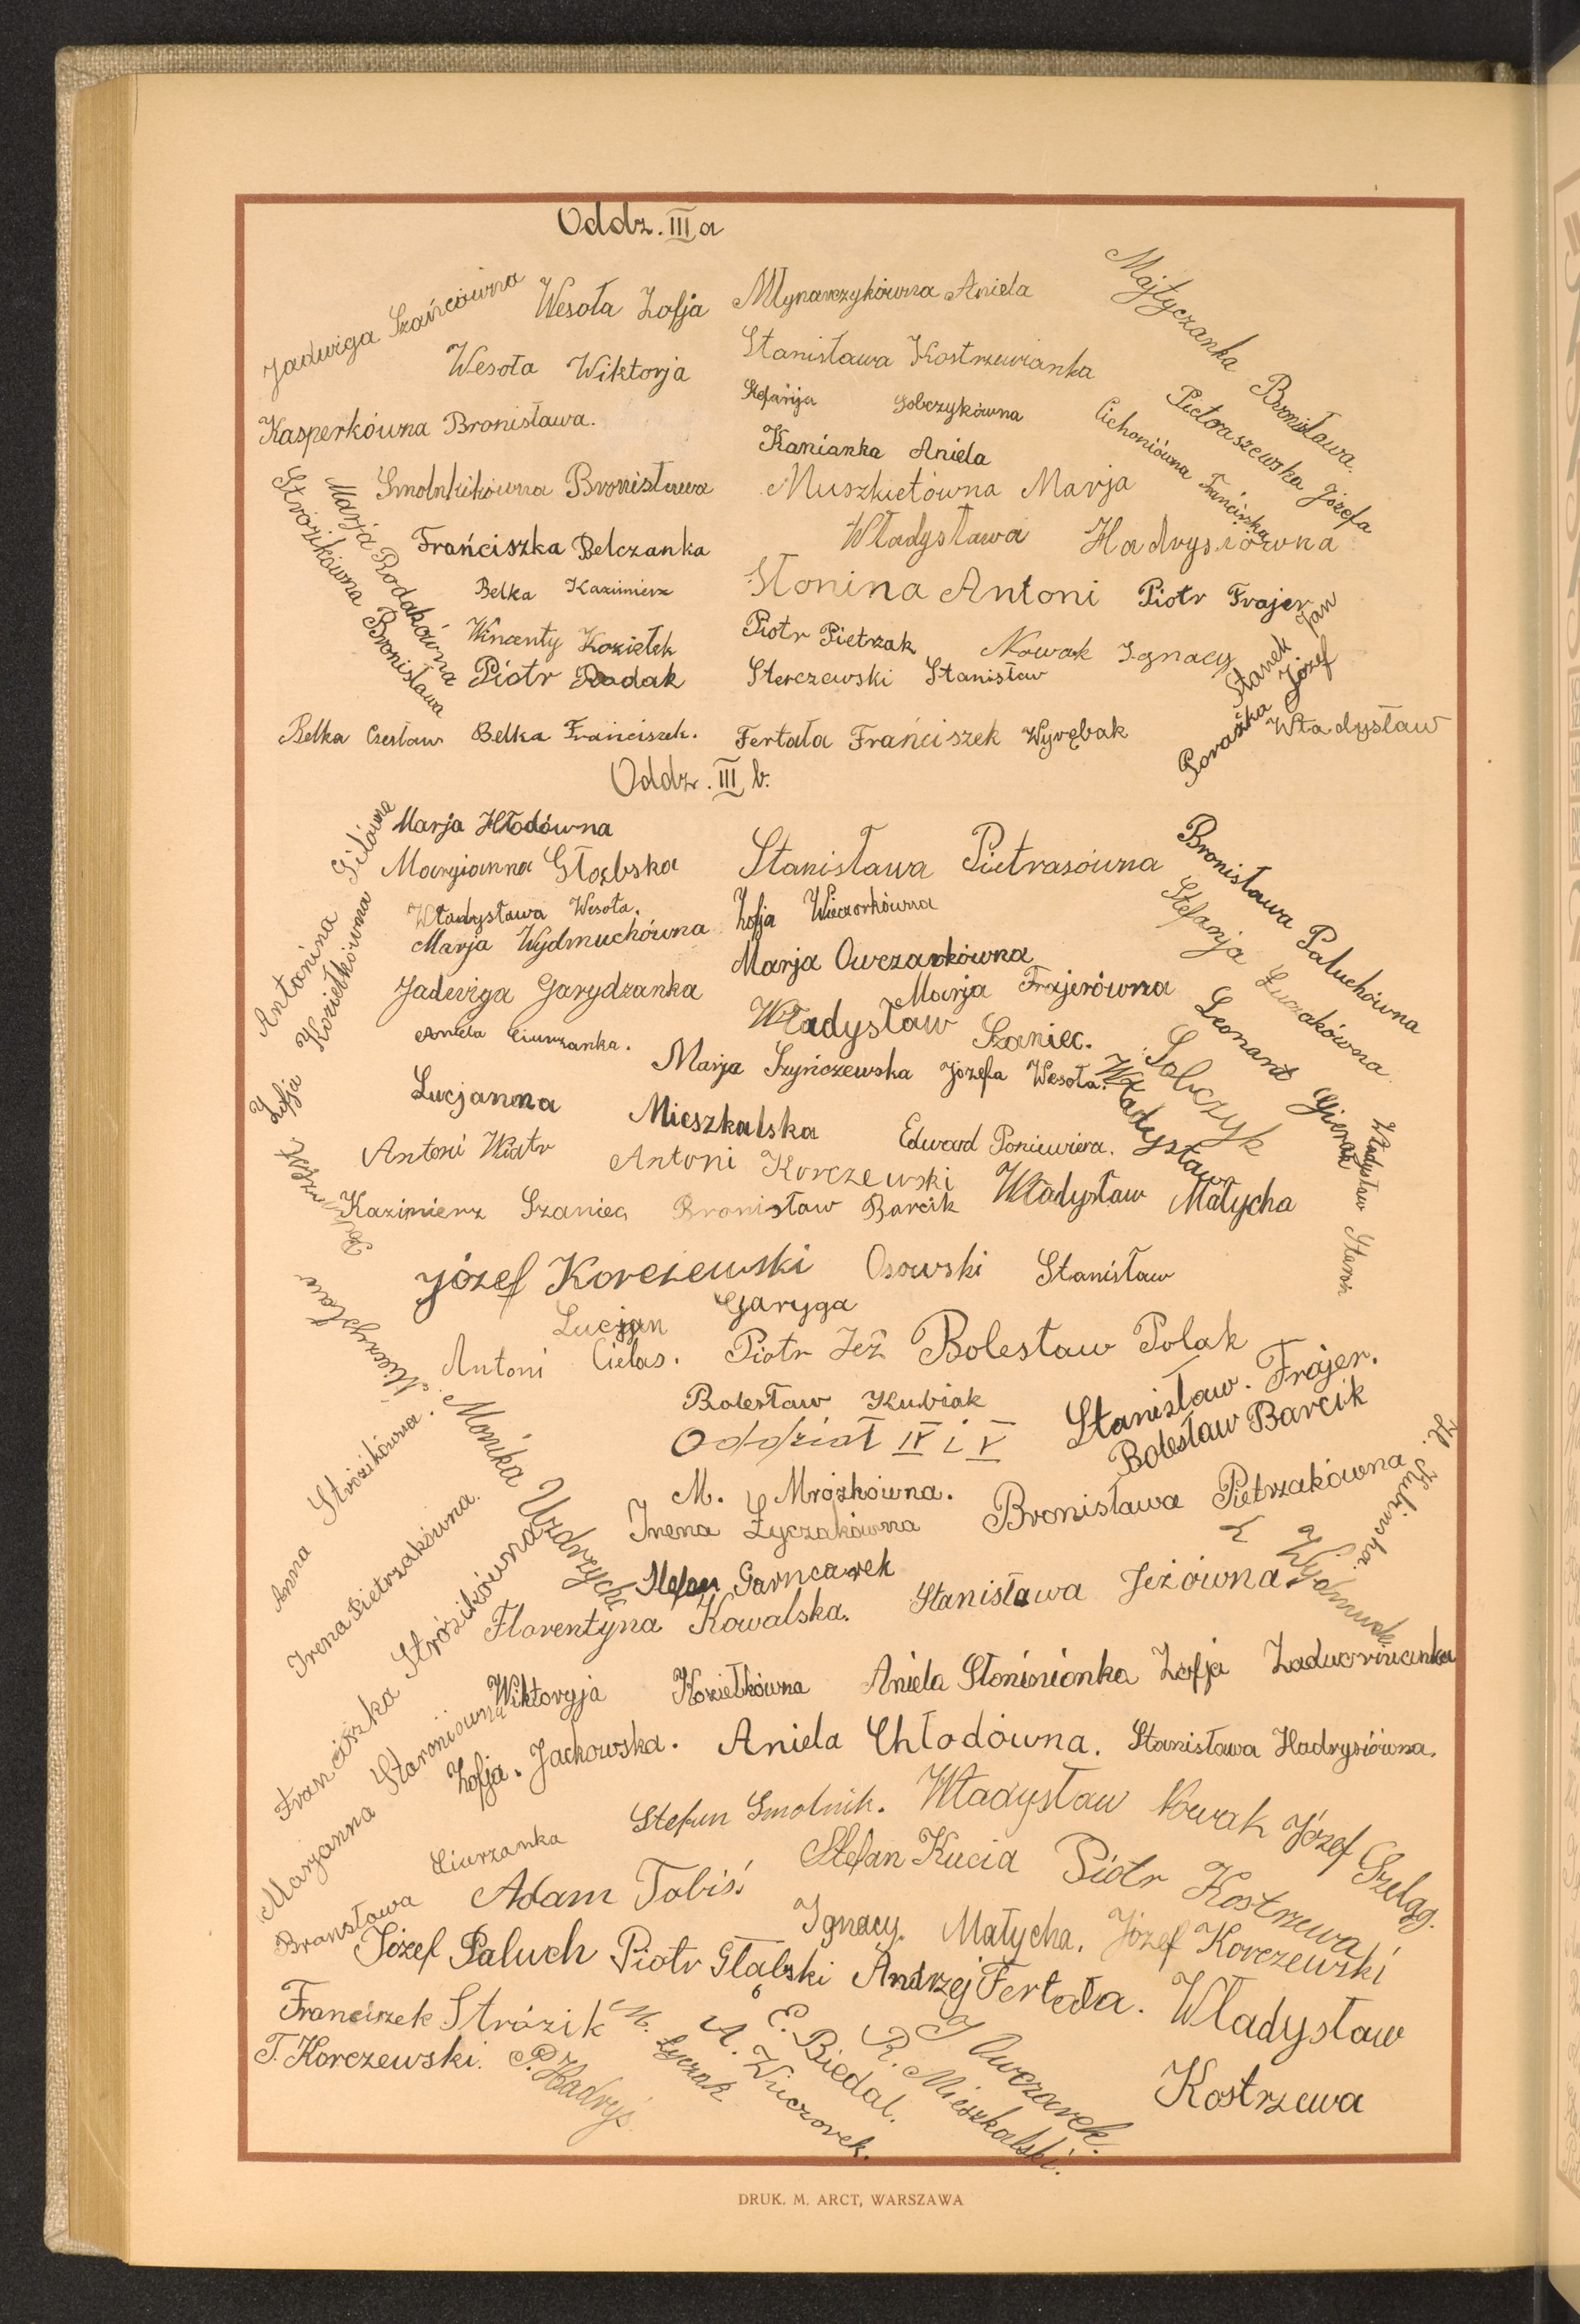 Oddz. III a
Jadwiga Szańcówna
Wesoła Zofja
Młynarczykówna Aniela
Majtyczanka Bronisława.
Wesoła Wiktorja
Stanisława Kostrzewianka
Pietoraszewska Józefa
Kasperkówna Bronisława.
Stefanja Sobczykówna
Cichoniówna Franciszka
Kanianka Aniela
Smolnikówna Bronisława
Muszkietówna Marja
Marja Rodakówna
Stróżikówna Bronisława
Frańciszka Belczanka
Władysława Hadrysiówna
Belka Kazimierz
Słonina Antoni
Piotr Frajer
Wincenty Koziełek
Piotr Pietrzak
Nowak Ignacy
Stanek Jan
Piotr Rodak
Sterczewski Stanisław
Porażka Józef
Belka Czesław
Belka Franciszek.
Fertała Frańciszek
Wyrębak Władysław
Oddz. III b.
Marja Hłodówna
Antonina Gilówna
Marjianna Głąbska
Stanisława Pietrasówna
Bronisława Paluchówna
Władysława Wesoła.
Zofja Wieczorkówna
Stefanja Łuczakówna
Marja Wydmuchówna
Marja Owczarkówna
Zofja Koziełkówna
Jadwiga Garydzanka
Marja Frajerówna
Aniela Ciurzanka.
Władysław Szaniec.
Leonard Gierak
Marja Szyńczewska
Józefa Wesoła.
Władysław Sobczyk
Lucjanna Mieszkalska
Edward Poniewiera.
Antoni Wiatr
Antoni Korczewski
Władysław
Kazimierz Szaniec
Bronisław Barcik
Władysław Małycha
Mieczysław
Józef Korczewski
Osowski Stanisław
Lucjan Garyga
Antoni Cielas.
Piotr Jeż
Bolesław Polak
Bolesław Kubiak
Stanisław. Frajer.
Oddział IV i V
Bolesław Barcik
M. Mrózkówna.
Anna Stróżikówna.
Monika Uzdrzycka
Irena Łyczakówna
Bronisława Pietrzakówna
Irena Pietrzakówna.
Stefan Garncarek
Florentyna Kowalska.
Stanisława Jeżówna
Franciszka Stróżikówna
Wiktoryja Koziełkówna
Aniela Słoninianka
Zofja
Marjanna Staroniówna
Zofja. Jackowska.
Aniela Chłodówna.
Stanisława Hadrysiówna.
Stefan Smolnik.
Władysław Nowak
Józef Szeląg.
Bransława Ciurzanka
Adam Tobiś.
Stefan Kucia
Piotr Kostrzewa
Ignacy. Małycha.
Józef Korczewski
Józef Paluch
Piotr Głąbski
Andrzej Fertała.
Władysław Kostrzewa
Franciszek Stróżik
M. Łyczak
A. Wieczorek.
E. Biedal.
R. Mieszkalski.
J Owczarek.
T. Korczewski.
P. Hadryś.
DRUK. M. ARCT, WARSZAWA